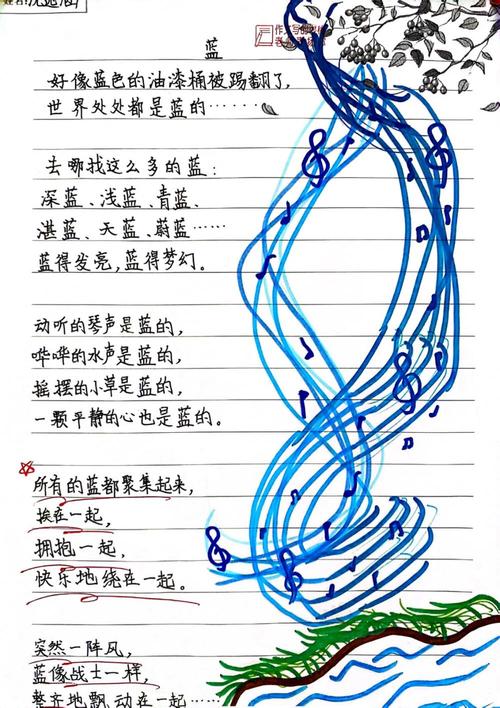 蓝
好像蓝色的油漆桶被踢翻了,
世界处处都是蓝的……
去哪找这么多的蓝:
深蓝、浅蓝、青蓝、
湛蓝、天蓝、蔚蓝……
蓝得发亮,蓝得梦幻。
动听的琴声是蓝的,
哗哗的水声是蓝的,
摇摆的小草是蓝的,
一颗平静的心也是蓝的。
所有的蓝都聚集起来,
挨在一起,
拥抱一起,
快乐地绕在一起。
突然一阵风,
蓝像战士一样,
整齐地飘动在一起……